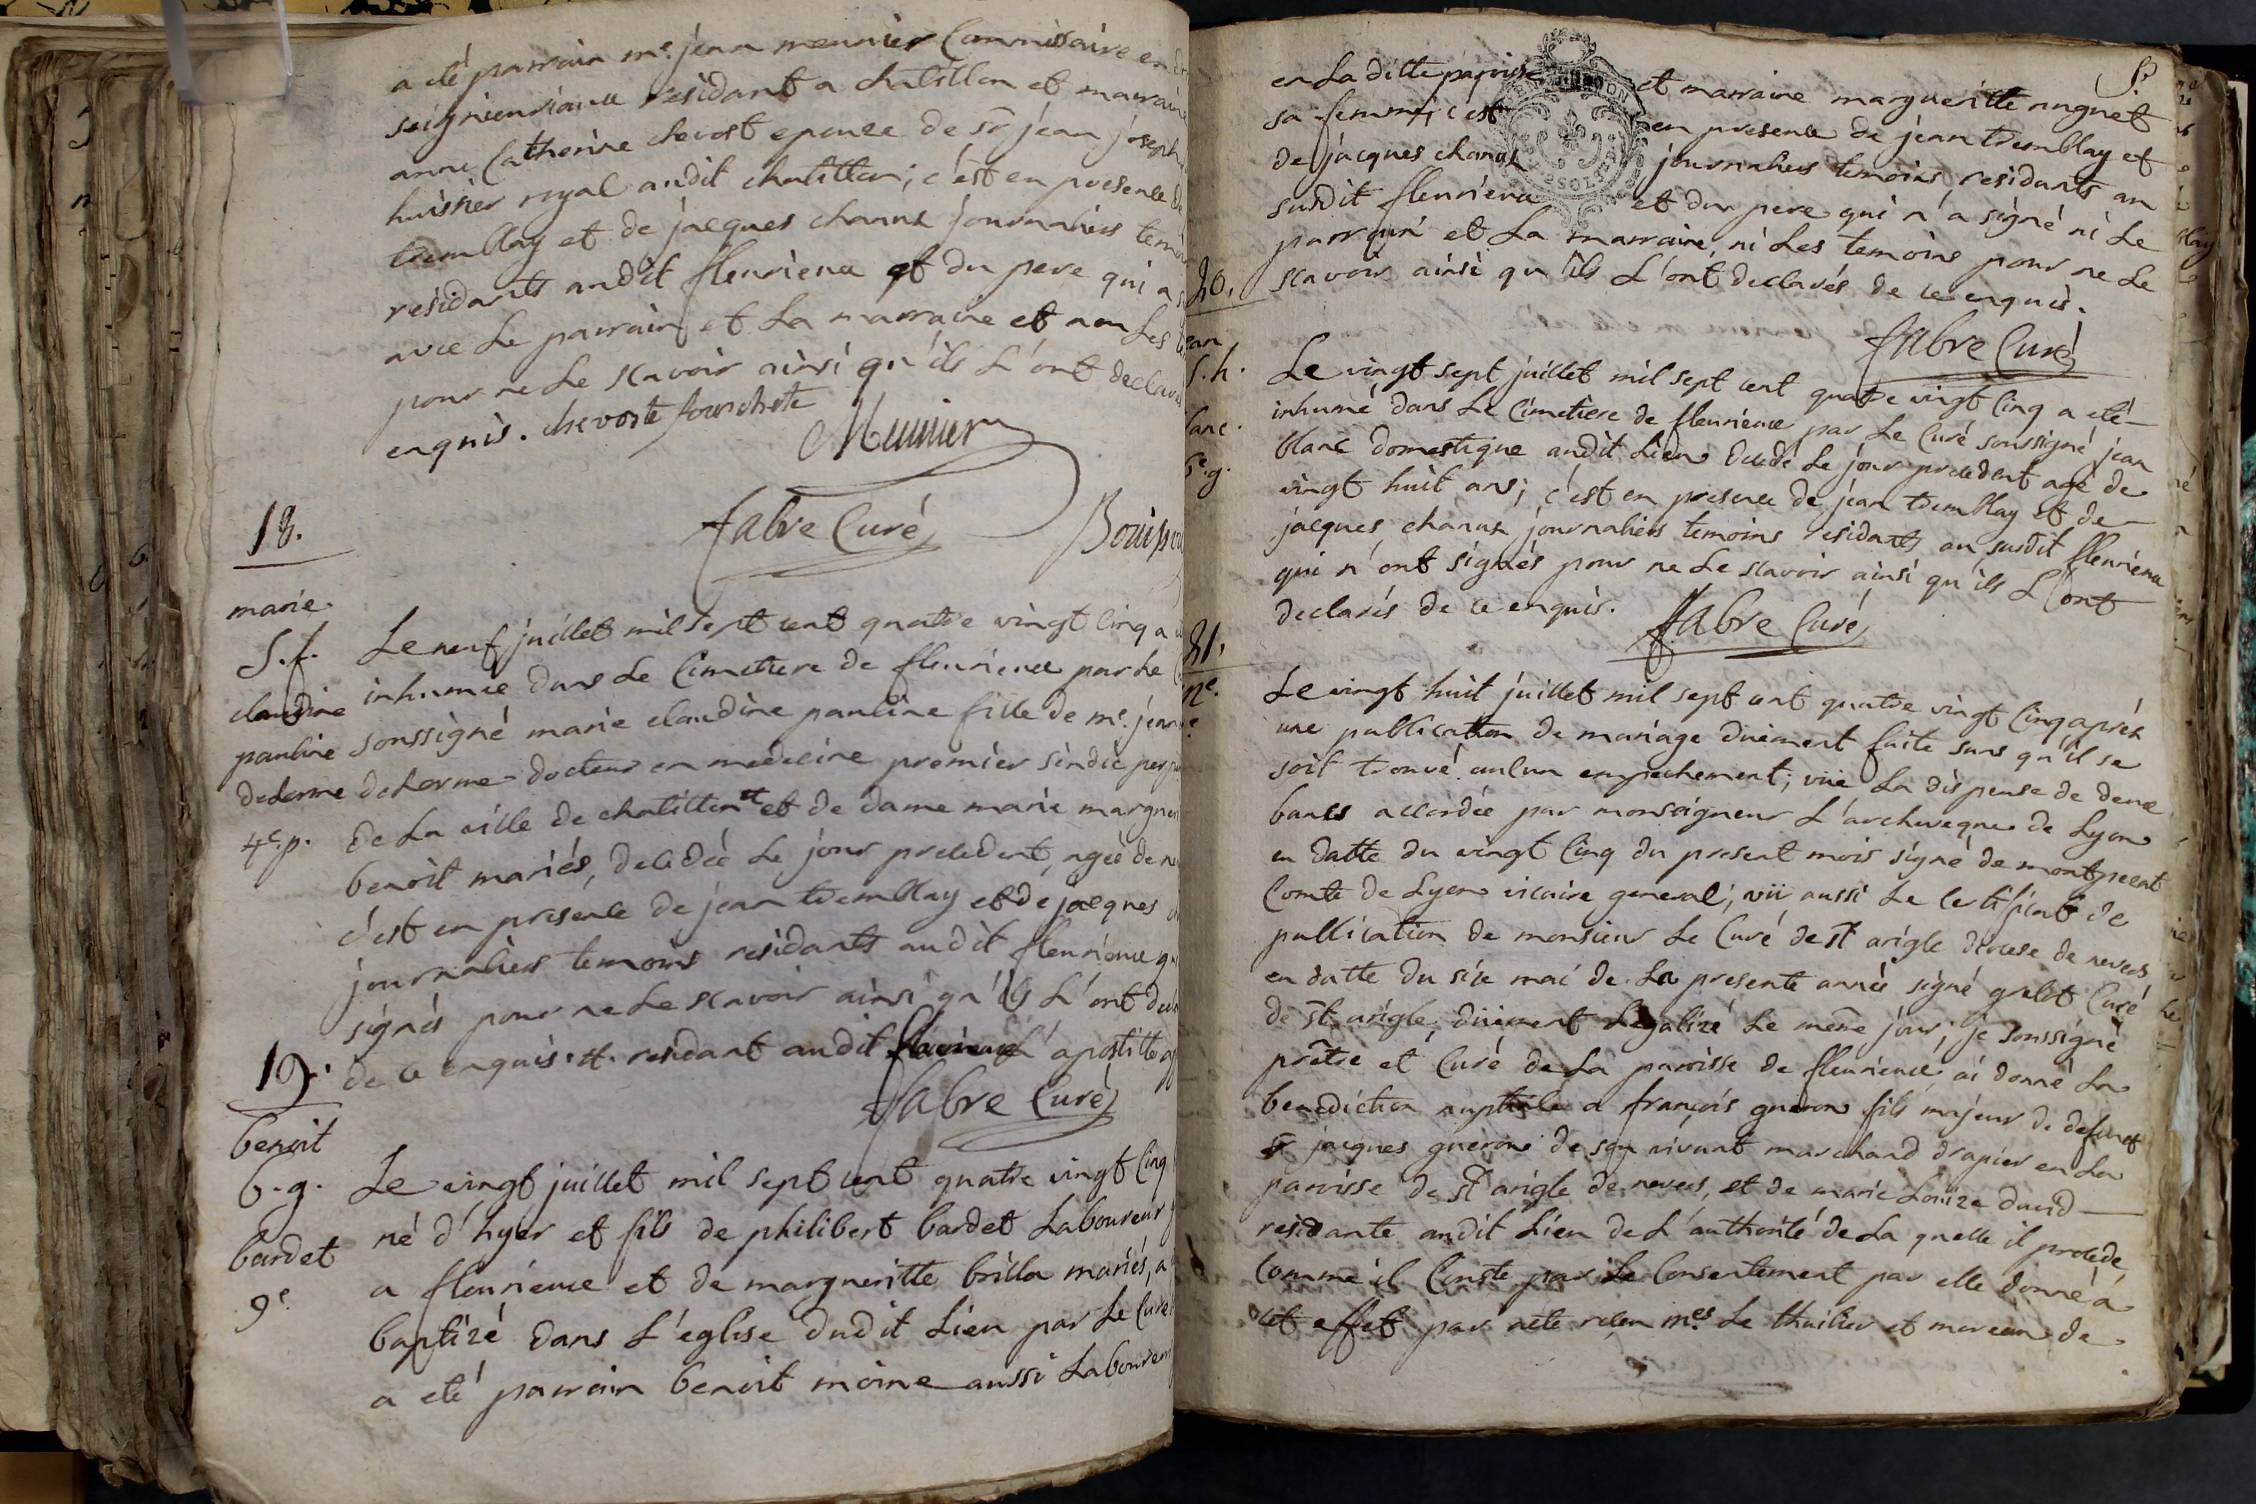 a eté parrain me. jean meunier Commissaire en
seigneuriaux residant a chatillon et marraine
anne Catherine chevost epouze de sr jean joseph
huissier royal audit chatillon; c'est en presence de
tremblay et de jacques chanux journaliers temoins
residants audit fleurieux et du pere qui a
avec Le parrain et La marraine et non Les
pour ne Le scavoir ainsi qu'ils L'ont declaré
enquis. chevoste fourchete
Meunier
fabre Curé
18.
marie
S.f.
claudine
pauline
delorme
4e. p.
Le neuf juillet mil sept cent quatre vingt cinq a
inhumée dans Le Cimetiere de fleurieux par Le
soussigné marie claudine pauline fille de me. jean
deLorme docteur en medecine premier sindic
de La ville de chatillon # et de dame marie
benoit mariés, decedée Le jour precedent, agée de
c'est en presence de jean tremblay et de jacques
journaliers temoins residants audit fleurieux
signés pour ne Le scavoir ainsi qu'ils L'ont
de ce enquis. #. residant audit fleurieux L'apostille
fabre Curé
19.
benoit
b. g.
bardet
9e.
Le vingt juillet mil sept cent quatre vingt cinq
né d'hyer et fils de philibert bardet Laboureur
a fleurieux et de margueritte brilla mariés, a
baptizé dans L'eglise dudit Lieu par Le Curé
a eté parrain benoit moine aussi Laboureur
en La ditte paroisse et marraine margueritte
sa femme; c'est en presence de jean tremblay et
de jacques chanux journaliers temoins residants au
susdit fleurieux et du pere qui n'a signé ni Le
parrain et La marraine, ni Les temoins pour ne Le
scavoir ainsi qu'ils L'ont declarés de ce enquis.
fabre Curé
20.
S. h.
Le vingt sept juillet mil sept cent quatre vingt cinq a eté
inhumé dans Le Cimetiere de fleurieux par Le Curé soussigné jean
blanc domestique audit Lieu decedé Le jour precedent agé de
vingt huit ans; c'est en presence de jean tremblay et de
jacques chanux journaliers temoins residants au susdit fleurieux
qui n'ont signés pour ne Le scavoir ainsi qu'ils L'ont
declarés de ce enquis. fabre Curé
21.
Le vingt huit juillet mil sept cent quatre vingt cinq aprés
une publication de mariage duement faite sans qu'il se
soit trouvé aucun empechement; vüe La dispense de deux
bancs accordée par monseigneur L'archeveque de Lyon
en datte du vingt cinq du present mois signé de
Comte de Lyon vicaire general; vü aussi Le certificat de
publication de monsieur Le Curé de st arigle diocese de nevers
en datte du six mai de La presente année signé Curé
de st. arigle, düement Legalizé Le meme jour; je soussigné
prêtre et Curé de La paroisse de fleurieux ai donné La
benediction nuptiale a françois gueron fils majeur de defunct
sr jacques gueron de son vivant marchand drapier en La
paroisse de st arigle de nevers, et de marie Louize
residante audit Lieu de L'authorité de La quelle il procede
Comme il Conste par Le Consentement par elle donné à
cet effet par acte reçu mes. Le thuilier et moreau de